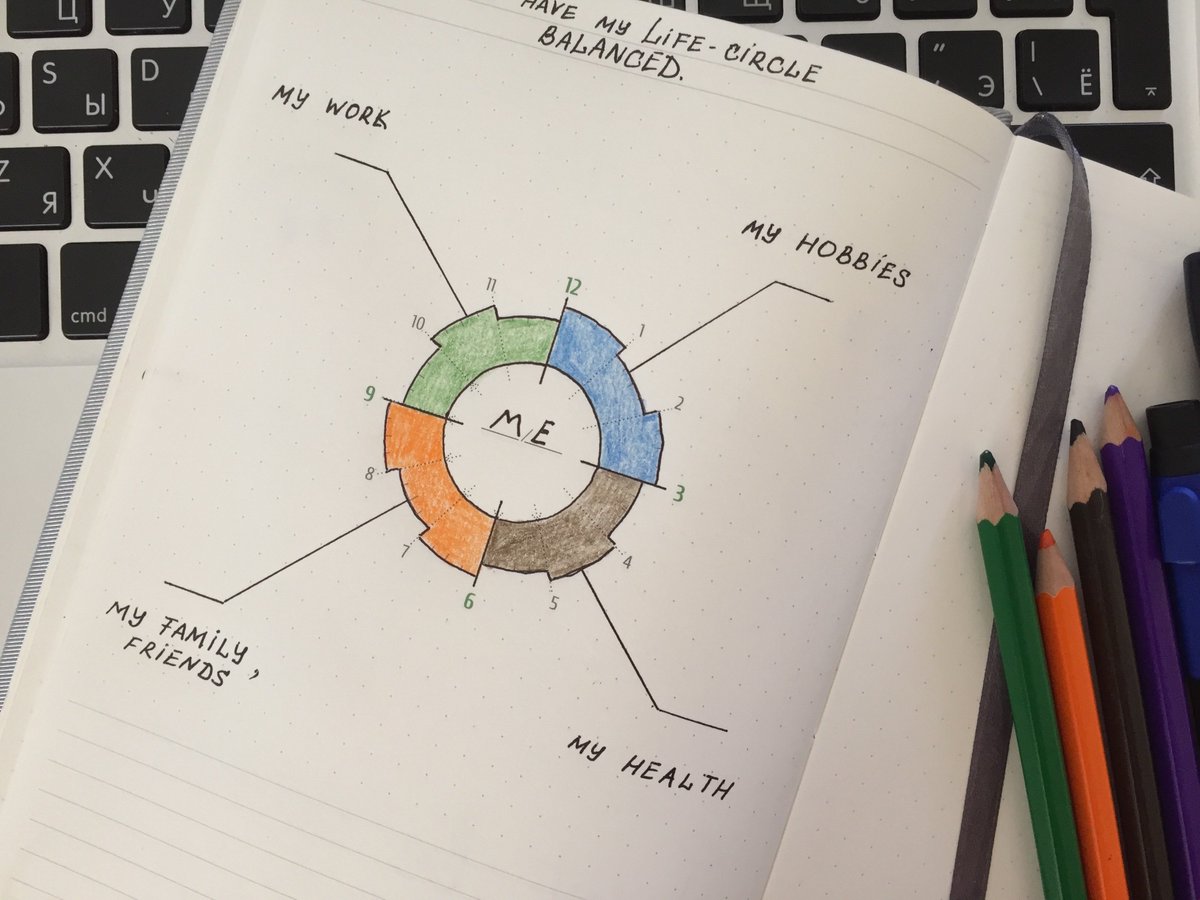 HAVE MY LIFE-CIRCLE
BALANCED.
MY WORK
MY HOBBIES
11
12
10
1
9
2
ME
8
3
7
4
6
5
MY FAMILY,
FRIENDS
MY HEALTH
Ц
У
S
Ы
D
Z
Я
X
cmd
"
Э
|
\
Ё